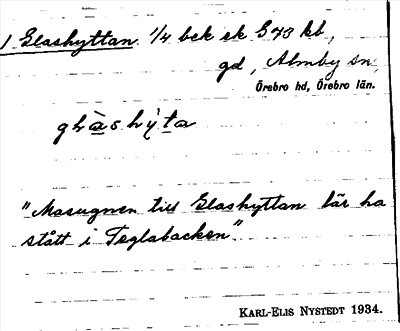 1 Glashyttan 1/4 bek ek G 73 kb,
gd, Almby sn,
Örebro hd, Örebro län.
"Masugnen till Glashyttan lär ha
stått i Teglabacken".
KARL-ELIS NYSTEDT 1934.